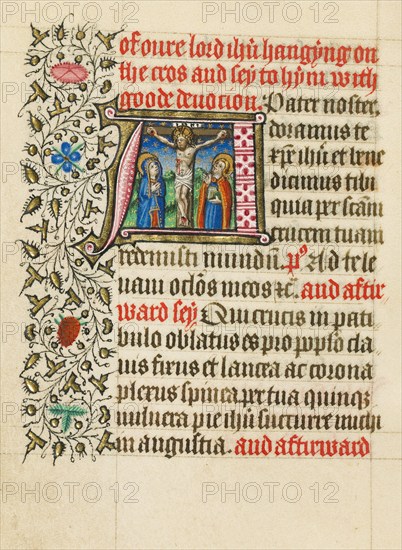 of oure lord ihū hangyng on
the cros and sey to hym with
goode deuotion. Pater noster
Adoramus te
xp̄e ihū et bene
dicimus tibi
quia per scām
crucem tuam
redemisti mundū. ps Ad te le
uaui oclōs meos ⁊c. and aftir
ward sey Qui crucis in pati
bulo oblatus es pro pp̄lo cla
uis fixus et lancea ac corona
plexus spinea per tua quinqȝ
uulnera pie ihū succurre michi
in angustia. and aftirward